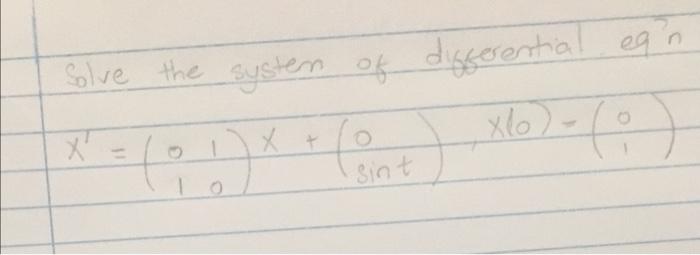 Solve the system of differential eq'n
X' = (0 1; 1 0) X + (0; sin t), X(0) = (0; 1)